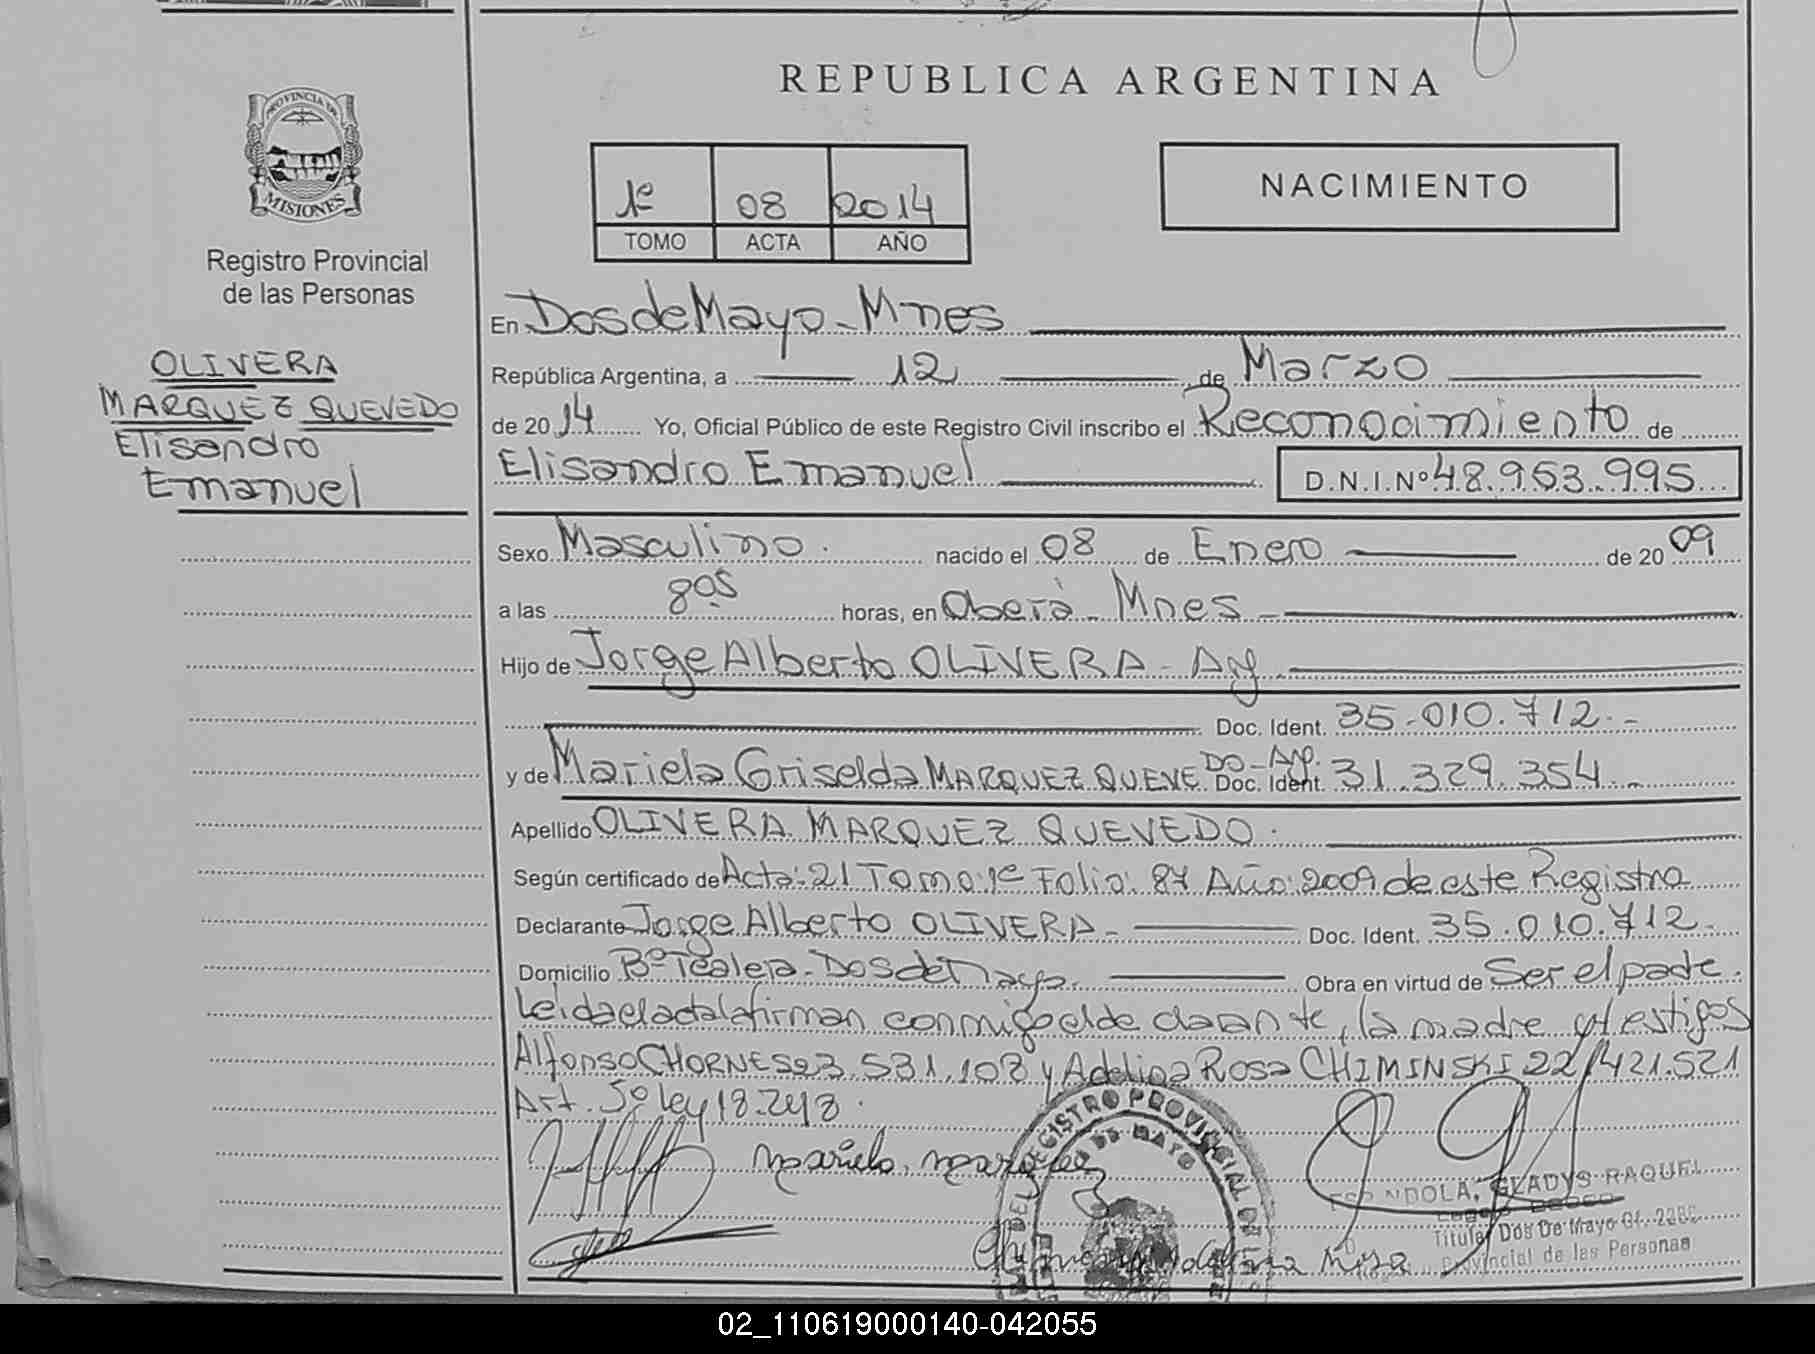 REPUBLICA ARGENTINA
PROVINCIA DE
MISIONES
Registro Provincial
de las Personas
1º 08 2014
TOMO ACTA AÑO
NACIMIENTO
OLIVERA
MARQUEZ QUEVEDO
Elisandro
Emanuel
En Dos de Mayo - Mnes
República Argentina, a 12 de Marzo
de 2014 Yo, Oficial Público de este Registro Civil inscribo el Reconocimiento de
Elisandro Emanuel D.N.I.Nº 48.953.995
Sexo Masculino. nacido el 08 de Enero de 2009
a las 8os horas, en Oberá - Mnes -
Hijo de Jorge Alberto OLIVERA - Arg
Doc. Ident. 35.010.712.-
y de Mariela Griselda MARQUEZ QUEVEDO - Arg. Doc. Ident. 31.329.354.-
Apellido OLIVERA MARQUEZ QUEVEDO.
Según certificado de Acta: 21 Tomo: 1º Folio: 87 Año: 2009 de este Registro
Declarante Jorge Alberto OLIVERA - Doc. Ident. 35.010.712.-
Domicilio Bº Tealera - Dos de Mayo. Obra en virtud de Ser el padre.
Leida el acta la firman conmigo el declarante, la madre y testigos
Alfonso CHORNES 23.531.108 y Adelina Rosa CHIMINSKI 22.421.521
Art. 5º ley 18.248.
Mariela Marquez
DEL REGISTRO PROVINCIAL DE
DOS DE MAYO
GLADYS RAQUEL
Titular Dos De Mayo Of.
Provincial de las Personas
02_110619000140-042055